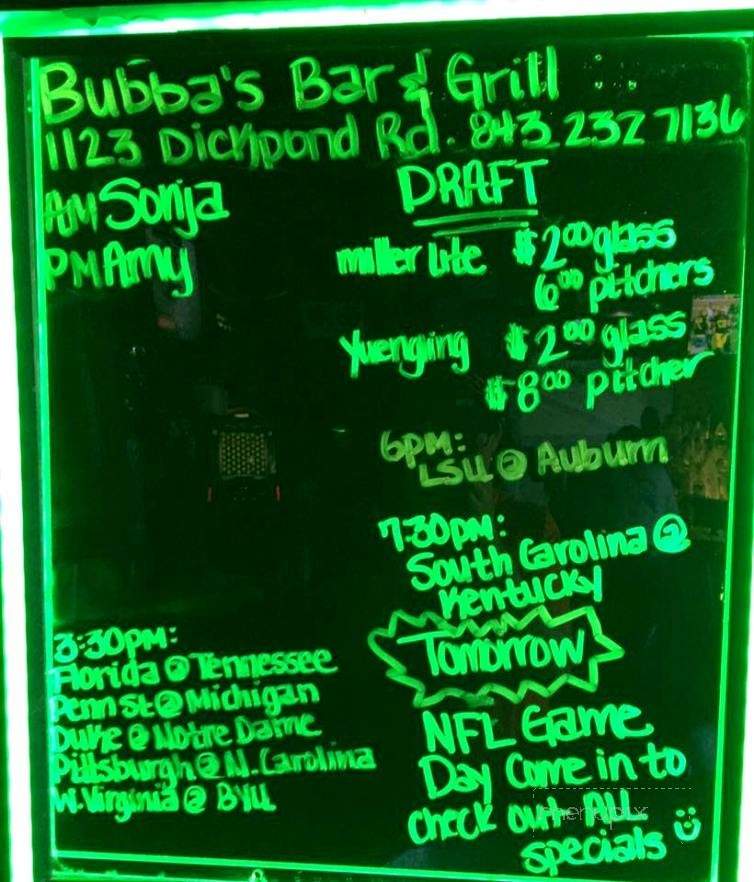 Bubba's Bar & Grill
1123 Dickpond Rd. 843 232 7136
AM Sonja
PM Amy
DRAFT
miller lite $2.00 glass
6.00 pitchers
Yuengling $2.00 glass
$8.00 pitcher
6pm:
LSU @ Auburn
7:30pm:
South Carolina @
Kentucky
3:30pm:
Florida @ Tennessee
Penn St @ Michigan
Duke @ Notre Dame
Pittsburgh @ N. Carolina
W. Virginia @ BYU
Tomorrow
NFL Game
Day Come in to
check out ALL
specials
menupix